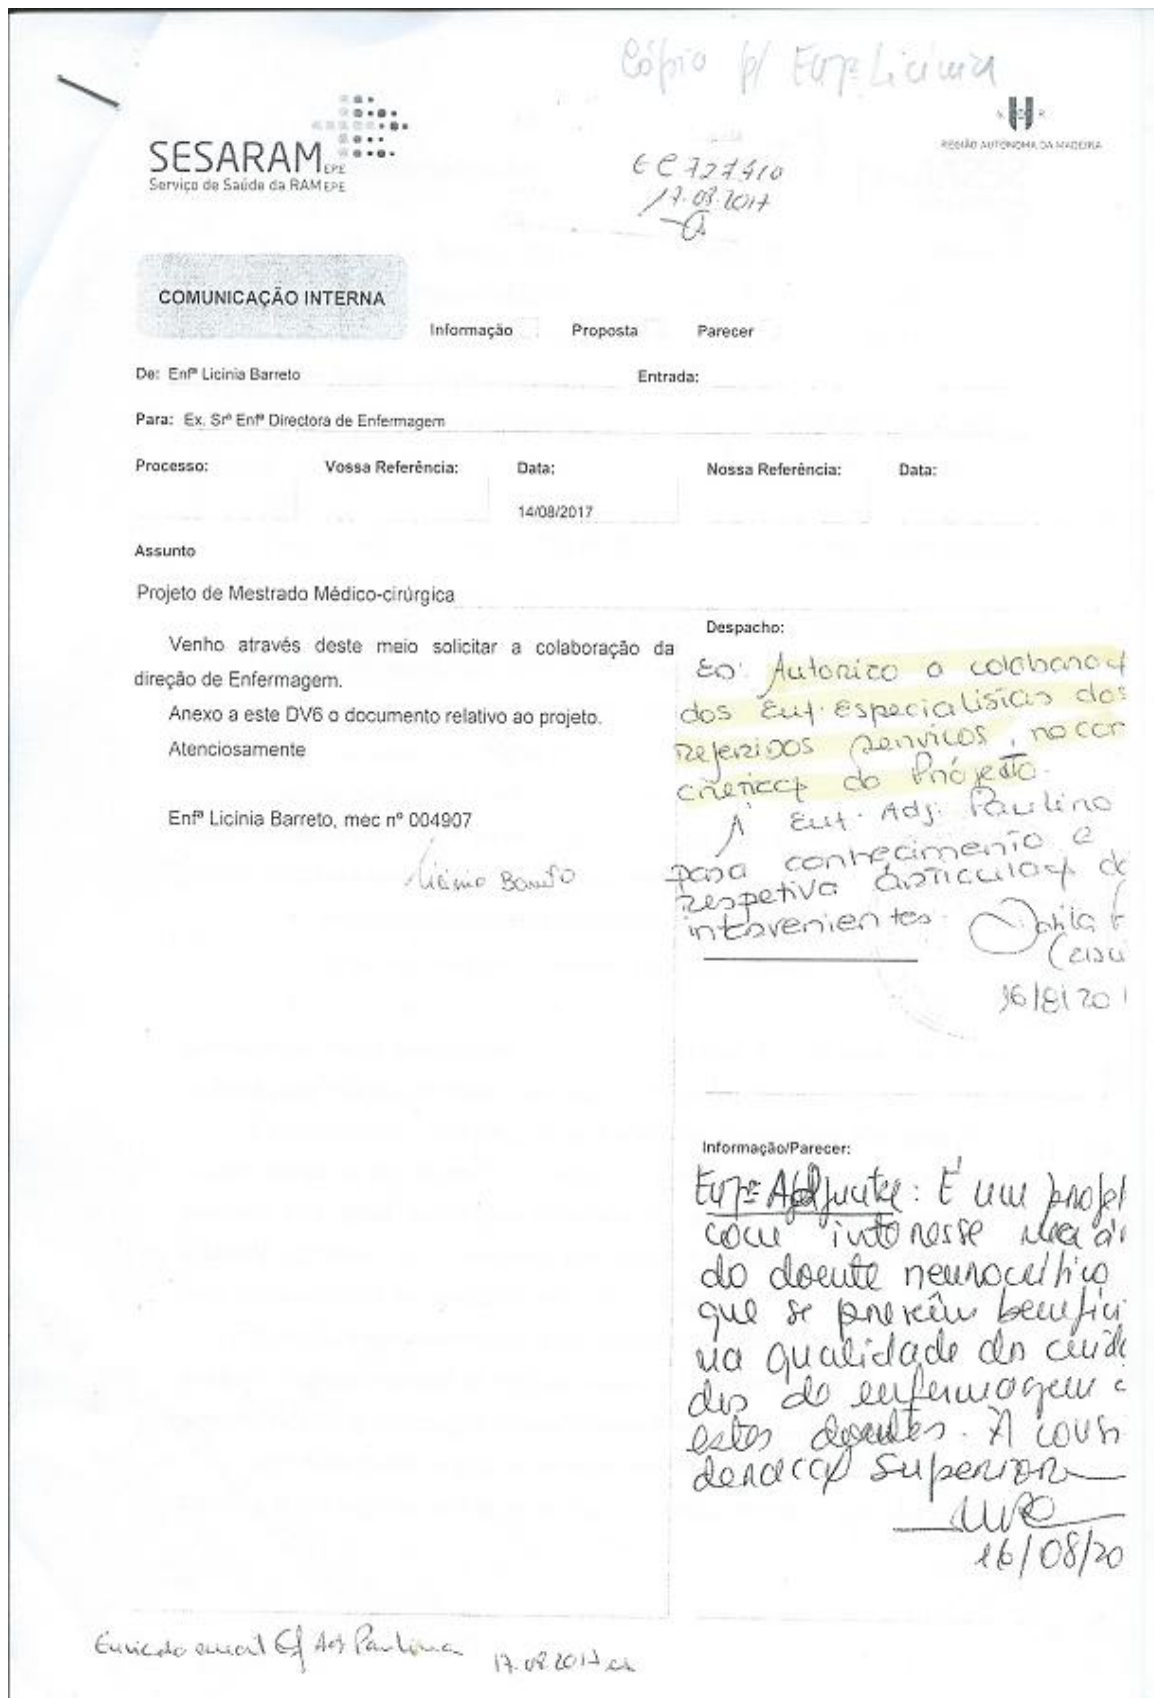 Cópia p/ Enfª Licínia
SESARAM EPE
Serviço de Saúde da RAM EPE
REGIÃO AUTÓNOMA DA MADEIRA
17.08.2017
COMUNICAÇÃO INTERNA
Informação Proposta Parecer
De: Enfª Licínia Barreto Entrada:
Para: Ex. Srª Enfª Directora de Enfermagem
Processo: Vossa Referência: Data: Nossa Referência: Data:
14/08/2017
Assunto
Projeto de Mestrado Médico-cirúrgica
Venho através deste meio solicitar a colaboração da
direção de Enfermagem.
Anexo a este DV6 o documento relativo ao projeto.
Atenciosamente
Enfª Licínia Barreto, mec nº 004907
Licínia Barreto
Despacho:
Autorizo a colaboraç
dos Enf. Especialistas dos
Referidos Serviços, na con
do Projeto.
À Enf. Adj. Paulina
para conhecimento e
respetiva articulaç
intervenientes.
16/8/201
Informação/Parecer:
Enfª Adjunta: É um projet
com interesse na ár
do doente neurocrítico
que se prevêm benefíci
na qualidade dos cuida
dos de enfermagem a
estes doentes. À consi
deração Superior
16/08/20
Enviado email Adj Paulina 17.08.2017